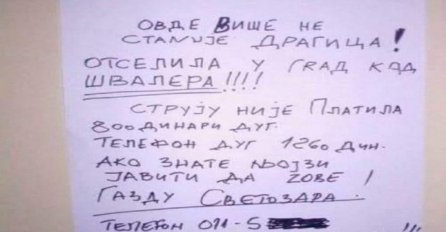 ОВДЕ ВИШЕ НЕ
СТАНУЈЕ ДРАГИЦА!
ОТСЕЛИЛА У ГРАД КОД
ШВАЛЕРА!!!!
СТРУЈУ НИЈЕ ПЛАТИЛА
800 ДИНАРИ ДУГ.
ТЕЛЕФОН ДУГ 1260 ДИН.
АКО ЗНАТЕ ЊОЈЗИ
ЈАВИТИ ДА ЗОВЕ!
ГАЗДУ СВЕТОЗАРА.
ТЕЛЕФОН 011-5
!!!